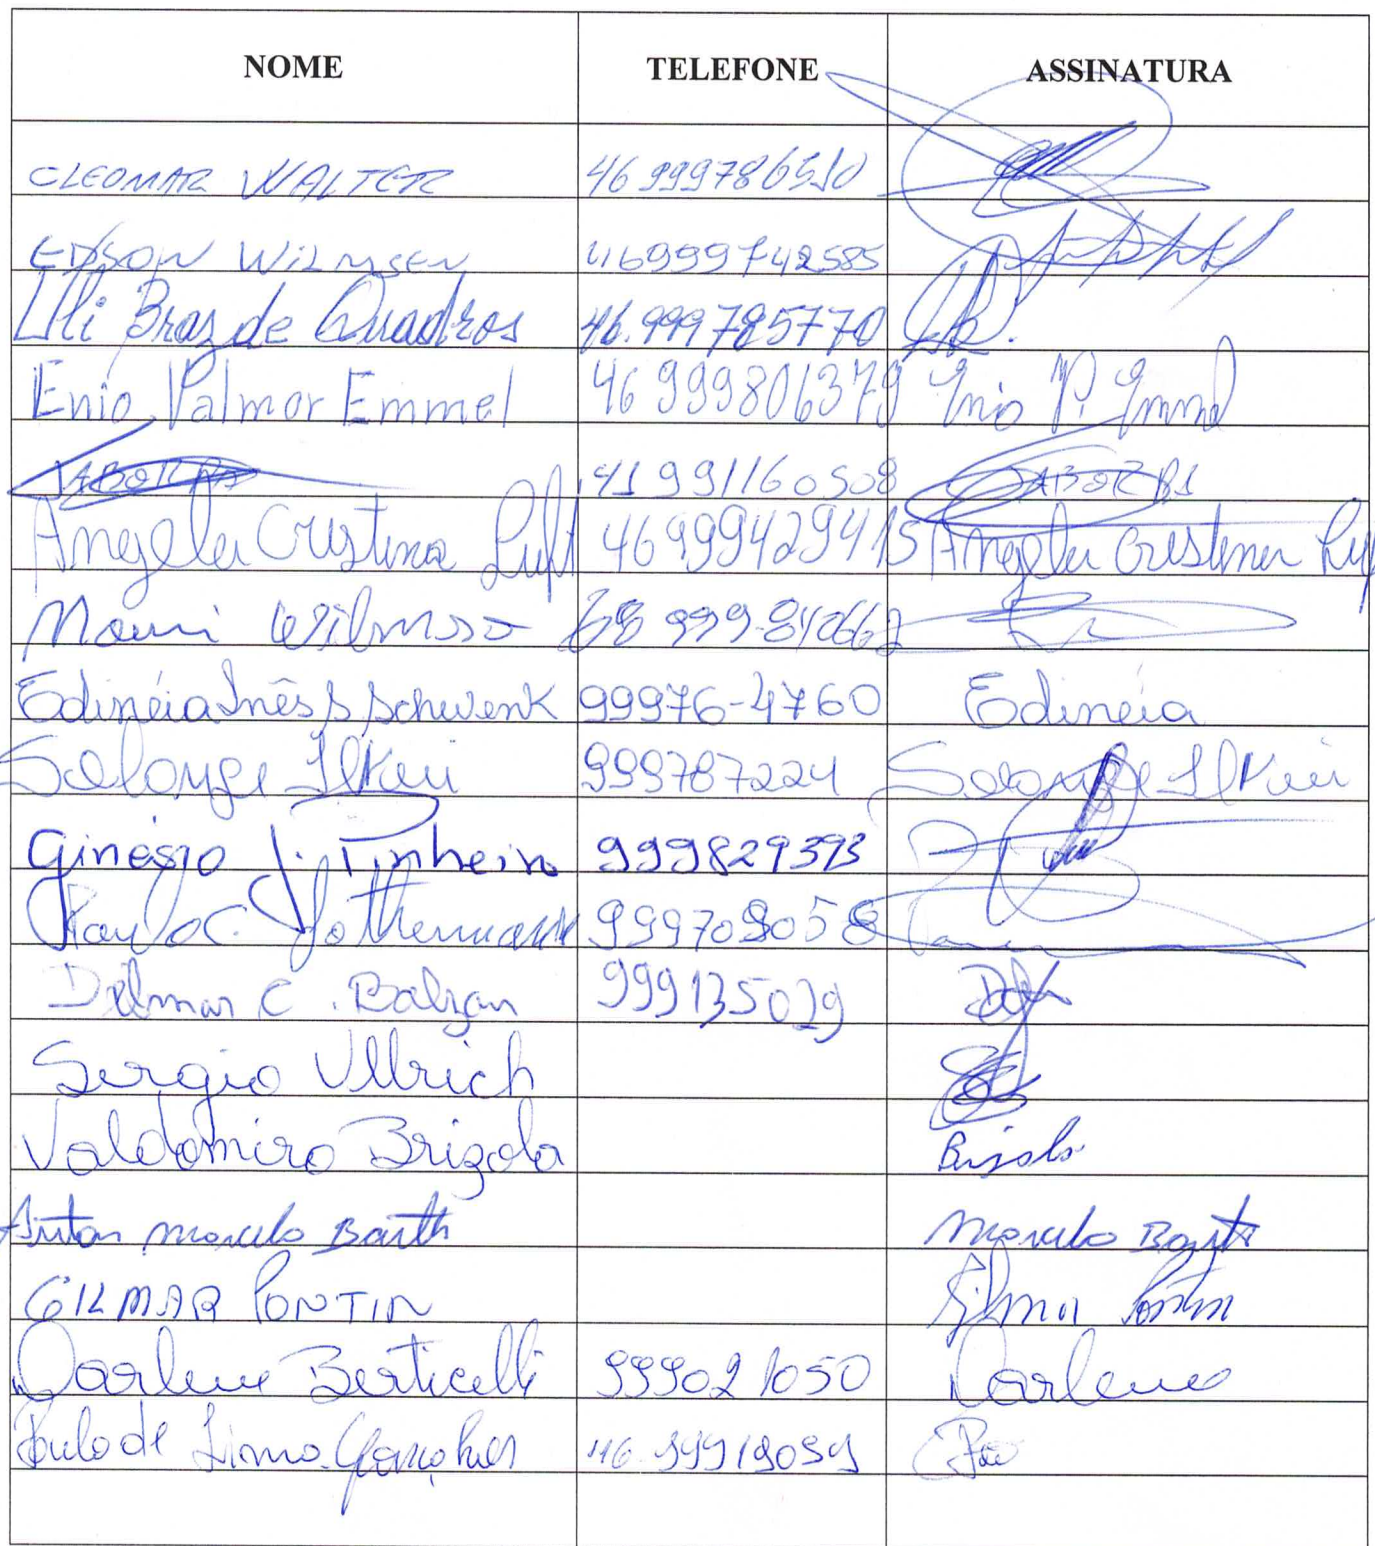 NOME TELEFONE ASSINATURA
CLEOMAR WALTER 46 999786510
EDSON WILMSEN 46999742585
Uli Braz de Quadros 46.999785770
Enio Valmor Emmel 46 999806379 Enio V. Emmel
41 991160508
Angela Cristina Luft 46999429415 Angela Cristina Luft
Edinéia Inês S Schwenk 99976-4760 Edinéia
Solange 999787224 Solange
Ginésio J. Pinheiro 999829393
Paulo C. 999709058
Delmar C. Balzan 999135029
Sergio Ullrich
Valdomiro Brizola Brizola
Airton Marcelo Barth Marcelo Barth
GILMAR PONTIN Gilmar Pontin
Darlene Berticelli 999021050 Darlene
Paulo de Lima Gonçalves 46